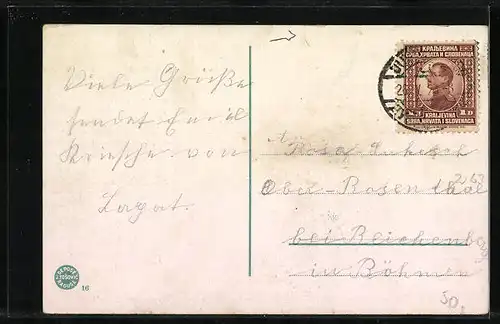 Viele Grüße
sendet Emil
Kriesche von
КРАЉЕВИНА
СРБА, ХРВАТА И СЛОВЕНАЦА
KRALJEVINA
SRBA, HRVATA I SLOVENACA
Rosa
Ober-Rosenthal
bei Reichenberg
in Böhmen
50
16